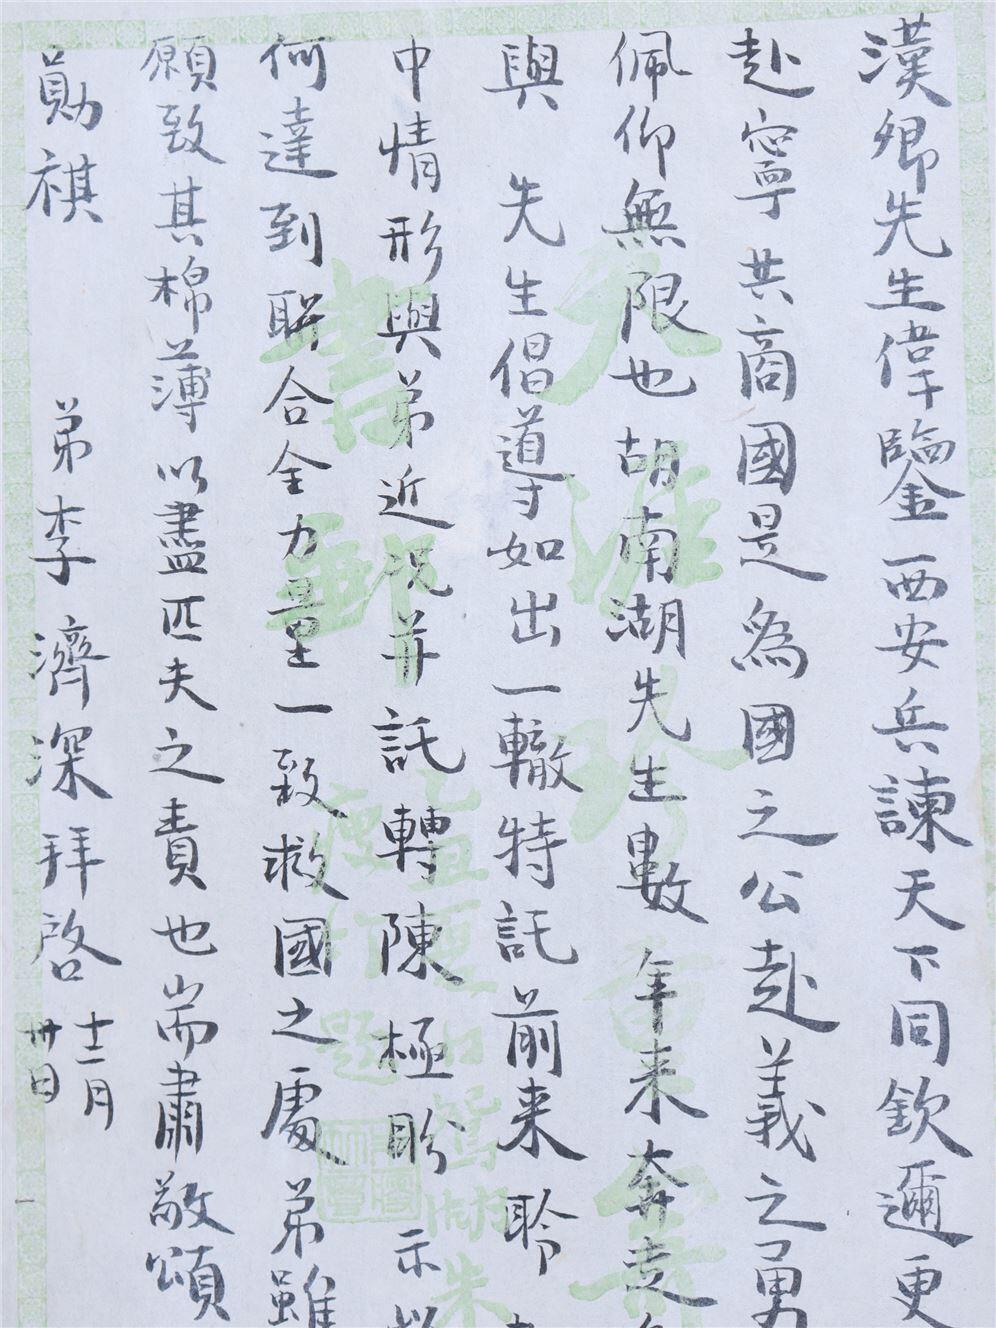 漢卿先生偉鑒西安兵諫天下同欽邇更
赴寧共商國是為國之公赴義之勇
佩仰無限也胡南湖先生數年來奔走
與先生倡導如出一轍特託前來聆
中情形與弟近況并託轉陳極盼示
何達到聯合全力量一致救國之處弟雖
願致其棉薄以盡匹夫之責也耑肅敬頌
勛祺 弟李濟深拜啓 十二月
卅日